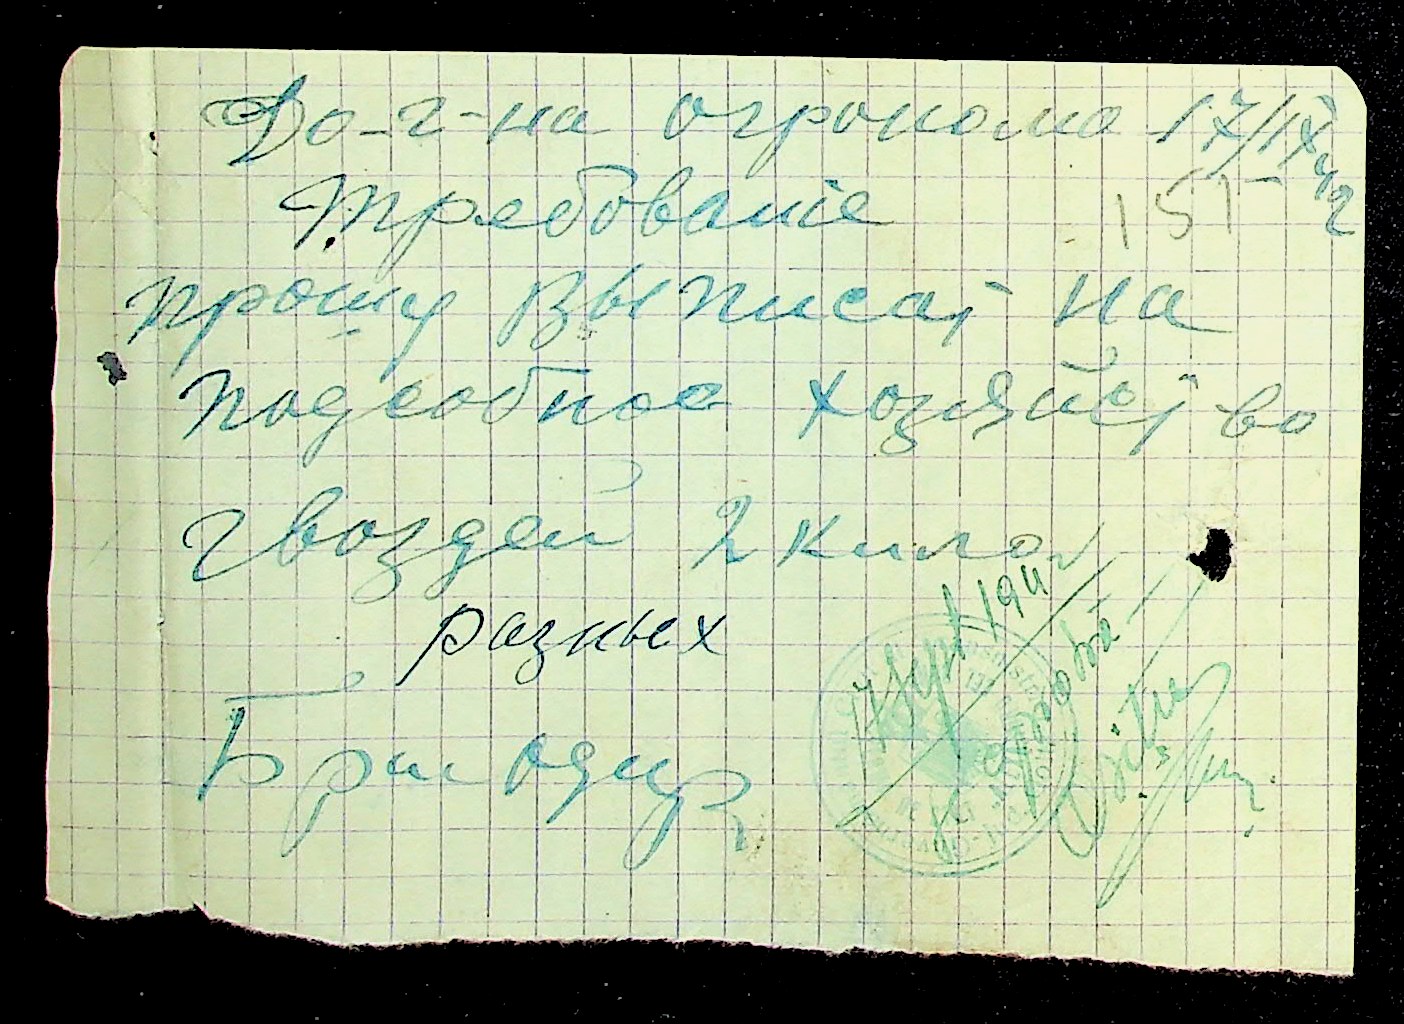 До-г-на огронома 17/IX 42
Требованіе 151
прошу выписат на
подсобное хозяйство
гвоздей 2 кило
разных
Бригодир
17 Sept 1942